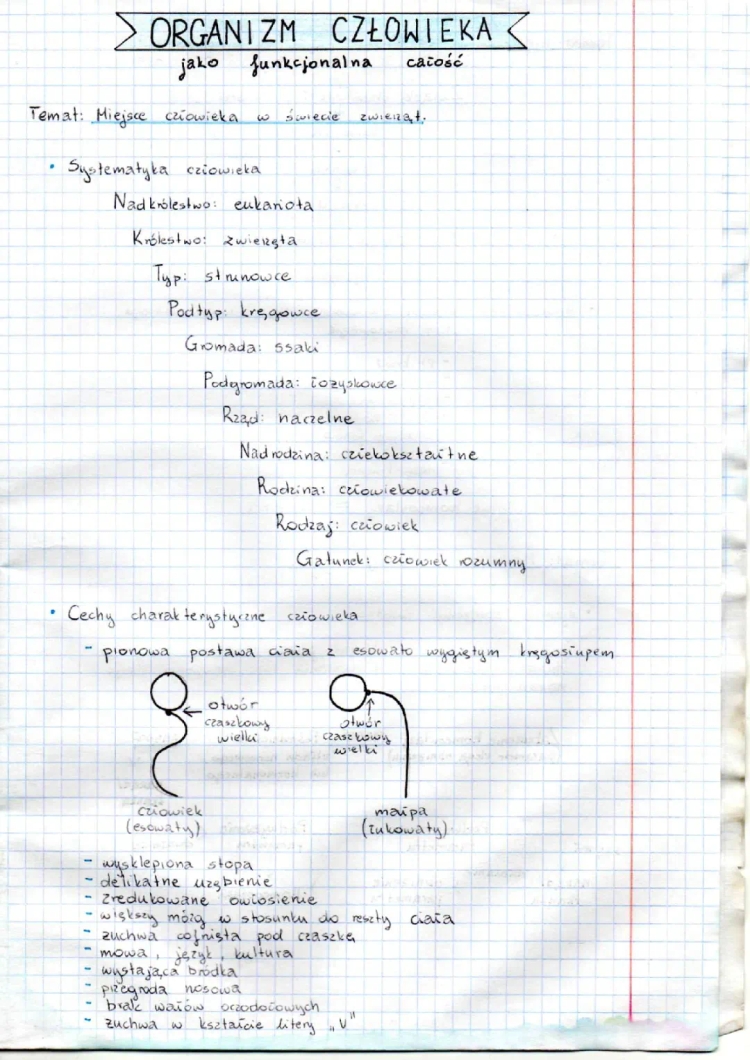 ORGANIZM CZŁOWIEKA
jako funkcjonalna całość
Temat: Miejsce człowieka w świecie zwierząt.
• Systematyka człowieka
Nadkrólestwo: eukariota
Królestwo: zwierzęta
Typ: strunowce
Podtyp: kręgowce
Gromada: ssaki
Podgromada: łożyskowce
Rząd: naczelne
Nadrodzina: człekokształtne
Rodzina: człowiekowate
Rodzaj: człowiek
Gatunek: człowiek rozumny
• Cechy charakterystyczne człowieka
- pionowa postawa ciała z esowato wygiętym kręgosłupem
otwór
czaszkowy
wielki
otwór
czaszkowy
wielki
człowiek
(esowaty)
małpa
(łukowaty)
- wysklepiona stopa
- delikatne uzębienie
- zredukowane owłosienie
- większy mózg w stosunku do reszty ciała
- żuchwa cofnięta pod czaszkę
- mowa, język, kultura
- wystająca bródka
- przegroda nosowa
- brak wałów oczodołowych
- żuchwa w kształcie litery „V"